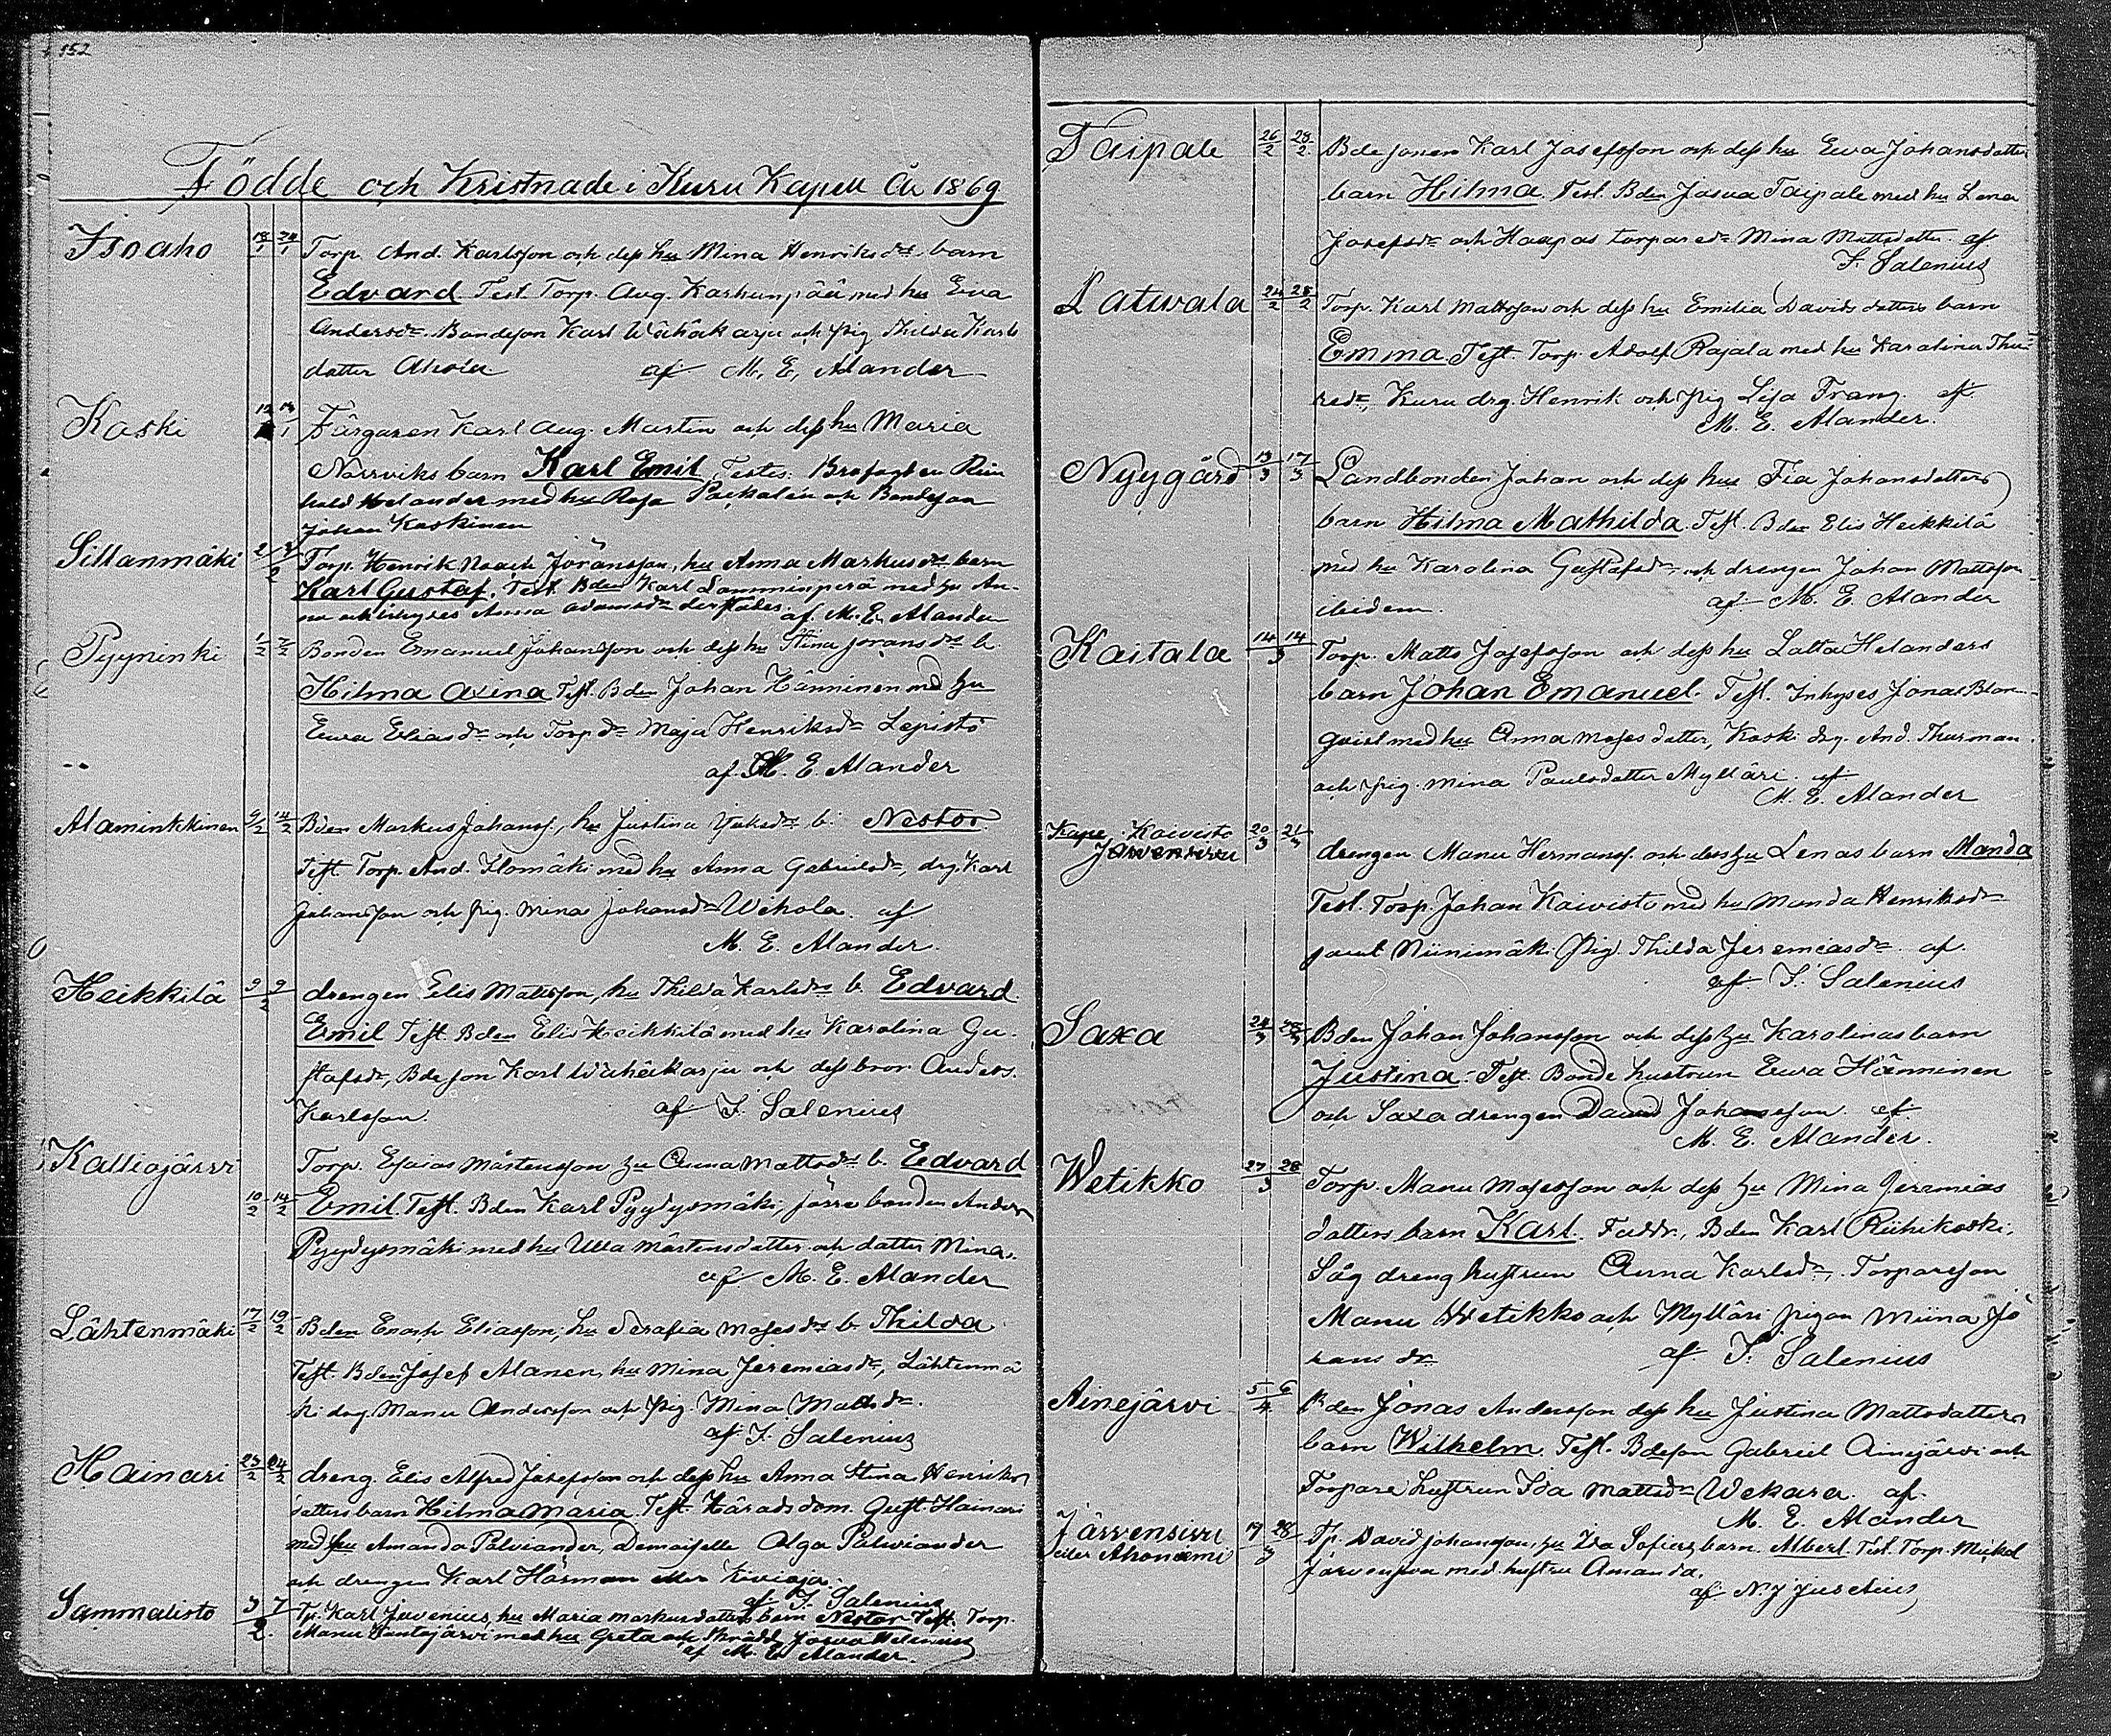 152
Födde och Kristnade i Kuru Kapell År 1869
Isoaho 18/1 24/1 Torp. And. Karlsson och dess hu Mina Henriksdrs barn
Edvard Test. Torp. Aug. Karhunpää med hu Eva
Andersdr. Bondeson Karl Wähäkarju och pig Thilda Karls
dotter Ahola af M. E. Alander
Kaski 12 13/1 Färgaren Karl Aug. Martin och dess hu Maria
Norrviks barn Karl Emil Testes:
Helander med hu Rosa och Bondeson
Johan Koskinen
Sillanmäki 2/ 2 Torp. Henrik Noach Jöransson, hu Anna Markusdrs barn
Karl Gustaf. Test. Bden Karl Lamminperä med hu An-
na och inhyses Anna Adamsdr af M. E. Alander
Pyyninki 1/2 7/2 Bonden Emanuel Johansson och dess hu Stina Joransdrs b.
Hilma Axina Test. Bden Johan Hänninen med hu
Ewa Eliasdr och Torpdr Maja Henriksdr Lepistö
af M. E. Alander
Alaminkkinen 9/2 14/2 Bden Markus Johanss., hu Justina drs b. Nestor.
Test Torp. And. Ilomäki med hu Anna Gabrielsdr, drg. Karl
Johansson och pig. Mina Johansdr Wehola. af
M. E. Alander
Heikkilä 9 9/2 drengen Elis Mattsson, hu Thilda Karlsdrs b. Edvard
Emil Test. Bden Elis Heikkilä med hu Karolina Gu-
stafsdr, Bdeson Karl Wähäkarju och dess bror Anders
Karlsson. af F. Salenius
Kalliojärvi Torp. Esaias Mårtensson hu Anna Mattsdrs b. Edvard
10/2 14/2 Emil. Test. Bden Karl Pyydysmäki, förre bonden Anders
Pyydysmäki med hu Ulla Mårtensdotter och dotter Mina.
af M. E. Alander
Lähtenmäki 17/2 19/2 Bden Enoch Eliasson, hu Serafia Mosesdrs b. Thilda
Test. Bden Josef Alanen, hu Mina Jeremiasdr, Lähtenmä
ki drg. Manu Andersson och pig. Mina Mattsdr.
af F. Salenius
Hainari 23/2 24/2 dreng. Elis Alfred Josefsson och dess hu Anna Stina Henriks
dotters barn Hilma Maria. Test. Häradsdom. Gust. Hainari
med fru Amanda Palviander, Demoiselle Olga Palviander
och drengen Karl Härman eller Kivioja.
af F. Salenius
Sammalisto 3 7/2 Tp. Karl Juvenius, hu Maria Markusdotters barn Nestor Test. Torp.
Manu Kantojärvi med hu Greta och Skrädd. Josua Helenius
af M. E. Alander.
Taipale 26/2 28/2 Bdesonen Karl Josefsson och dess hu Ewa Johansdotters
barn Hilma. Test. Bden Josua Taipale med hu Lena
Josefsdr och Haapas torparedr Mina Mattsdotter. af
F. Salenius
Latwala 24/2 28/2 Torp. Karl Mattsson och dess hu Emilia Davidsdotters barn
Emma Test. Torp. Adolf Rajala med hu Karolina Thu-
redr, Kuru drg. Henrik och pig Lisa Frang. af
M. E. Alander.
Nyygård 13/3 17/3 Landbonden Johan och dess hus Fia Johansdotters
barn Hilma Mathilda. Test. Bden Elis Heikkilä
med hu Karolina Gustafsdr, och drengen Johan Mattsson
ibidem. af M. E. Alander
Kaitala 14 14/3 Torp. Matts Josefsson och dess hu Lotta Helanders
barn Johan Emanuel. Test. Inhyses Jonas Blom-
qvist med hu Anna Mosesdotter, Koski drg. And. Thurman
och pig. Mina Paulsdotter Mylläri. af
M. E. Alander
Kape Koivisto 20/3 21/3
Järvensivu drengen Manu Hermanss. och dess hu Lenas barn Manda
Test. Torp. Johan Koivisto med hu Manda Henriksdr
samt Niinimäk. Pig. Thilda Jeremiasdr. af.
af F. Salenius
Saxa 24/3 28/3 Bden Johan Johansson och dess hu Karolinas barn
Justina. Test. Bonde hustrun Ewa Hänninen
och Saxa drengen David Johansson. af
M. E. Alander.
Wetikko 27 28/3 Torp. Manu Mosesson och dess hu Mina Jeremias
dotters barn Karl. Faddr., Bden Karl Riihikoski,
Såg dreng hustrun Anna Karlsdr, Torparson
Manu Wetikko och Mylläri pigan Miina Jo
hans dr af F. Salenius
Ainejärvi 5 6/4 Bden Jonas Andersson dess hu Justina Mattsdotters
barn Wilhelm Test. Bdeson Gabriel Ainejärvi och
Torpare hustrun Ida Mattsdr Wekara. af.
M. E. Alander
Järvensivu 19 28/3 Tp. David Johansson, hu Ida Sofias barn. Albert. Test. Torp. Mickel
eller Ahoniemi Järvensivu med hustru Amanda.
af N. J. Juselius